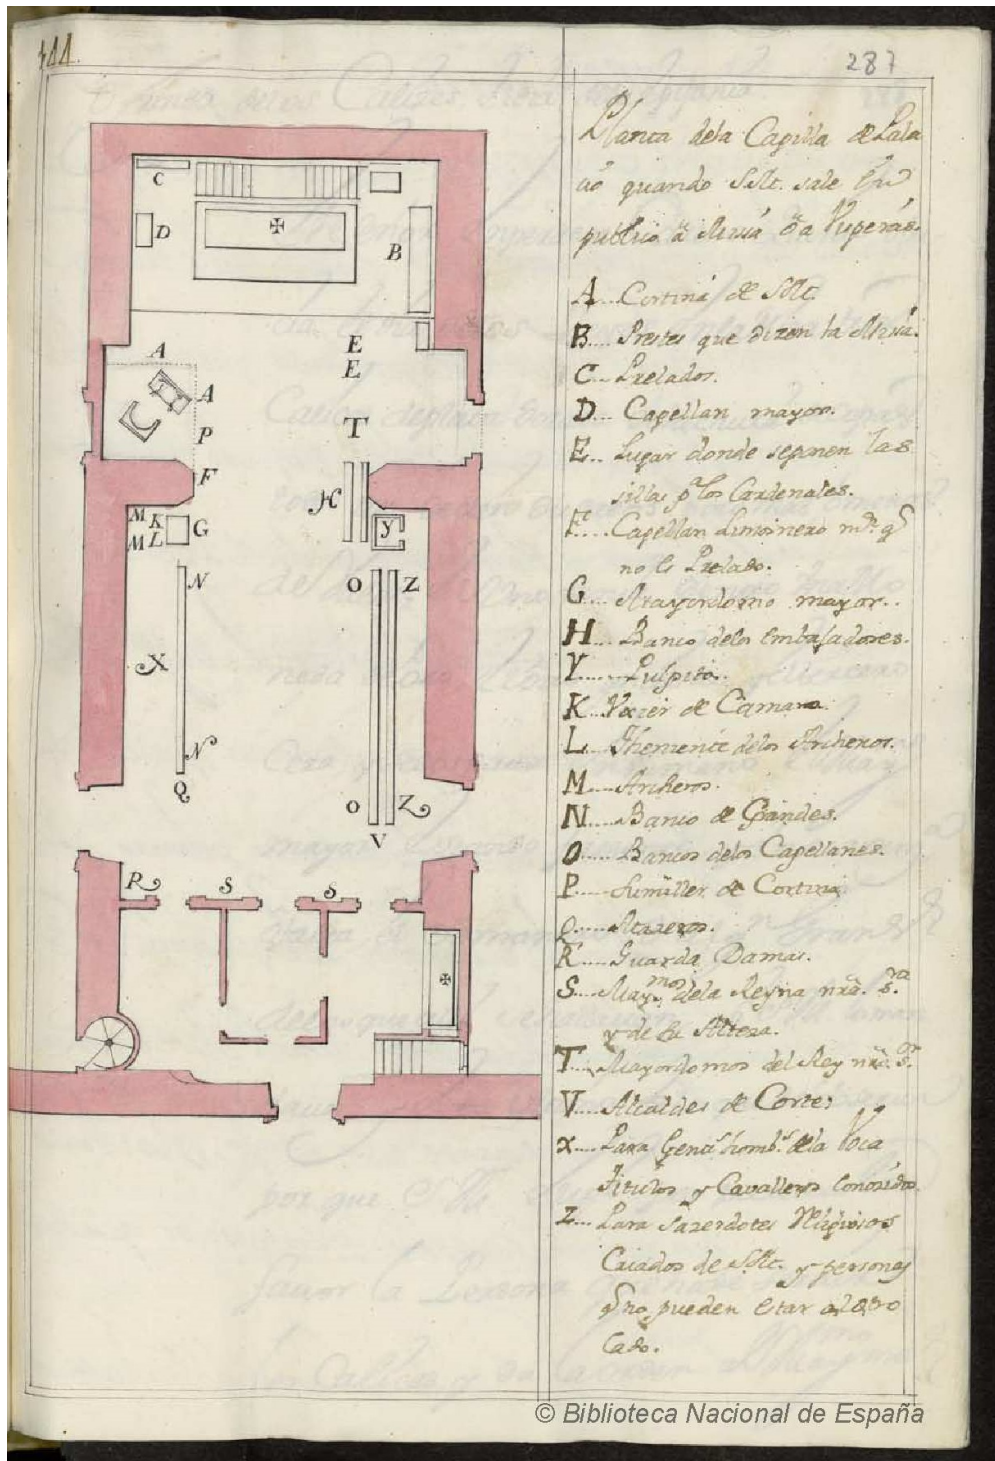 144.
287
Planta dela Capilla de Pala
cio quando S.M. sale En
publico â Missa ô a Visperas.
A.... Cortina de S.M.
B.... Prestes que dizen la Missa.
C... Prelados.
D... Capellan mayor.
E... Lugar donde se ponen las
sillas pa. los Cardenales.
F.... Capellan Limosnero mr. q
no es Prelado.
G.... Mayordomo mayor..
H... Banco delos Embasadores.
Y...... Pulpito.
K... Vxier de Camara.
L... Theniente delos Archeros.
M.... Archeros.
N.... Banco de Grandes.
O..... Bancos delos Capellanes.
P..... Sumiller de Cortina
Q..... Mazeros.
R.... Guarda Damas.
S.... Maymos. dela Reyna nra. sra.
y de su Alteza.
T.... Mayordomos del Rey nro. sr.
V.... Alcaldes de Corte
X.... Para Gents. hombs. dela Voca
Titulos y Cavalleros Conosidos.
Z... Para Sazerdotes Religiosos
Criados de S.M. y personas
q no pueden estar al otro
lado.
C
D
B
A
E
E
A
P
T
F
H
M K
G
M L
Y
N
O
Z
X
N
Q
O
Z
V
R
S
S
© Biblioteca Nacional de España